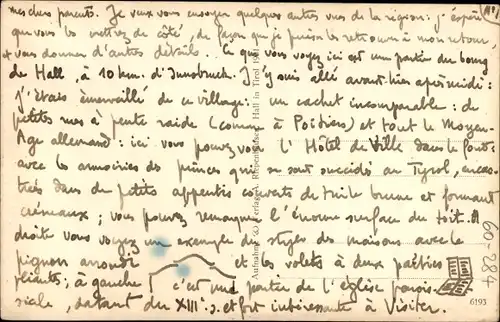 mes chers parents. Je veux vous envoyer quelques autres vues de la région : j'espère
que vous les mettrez de côté, de façon que je puisse les retrouver à mon retour
+ vous donner d'autres détails. Ce que vous voyez ici est une partie du bourg
de Hall, à 10 km. d'Innsbruck. J'y suis allé avant-hier après midi :
j'étais émerveillé de ce village : un cachet incomparable : de
petites rues à pente raide (comme à Poitiers) et tout le Moyen-
Age allemand : ici vous pouvez voir l'Hôtel de Ville dans le fond
avec les armoiries des princes qui se sont succédés au Tyrol, encas-
trées dans de petits appentis couverts de tuile brune et formant
créneaux ; vous pouvez remarquer l'énorme surface du toit. A
droite vous voyez un exemple du style des maisons avec le
pignon arrondi et les volets à deux parties
pliants ; à gauche c'est une partie de l'église parois-
siale, datant du XIIIe s. et fort intéressante à visiter.
Aufnahme u. Verlag Hall in Tirol
60-284
6193